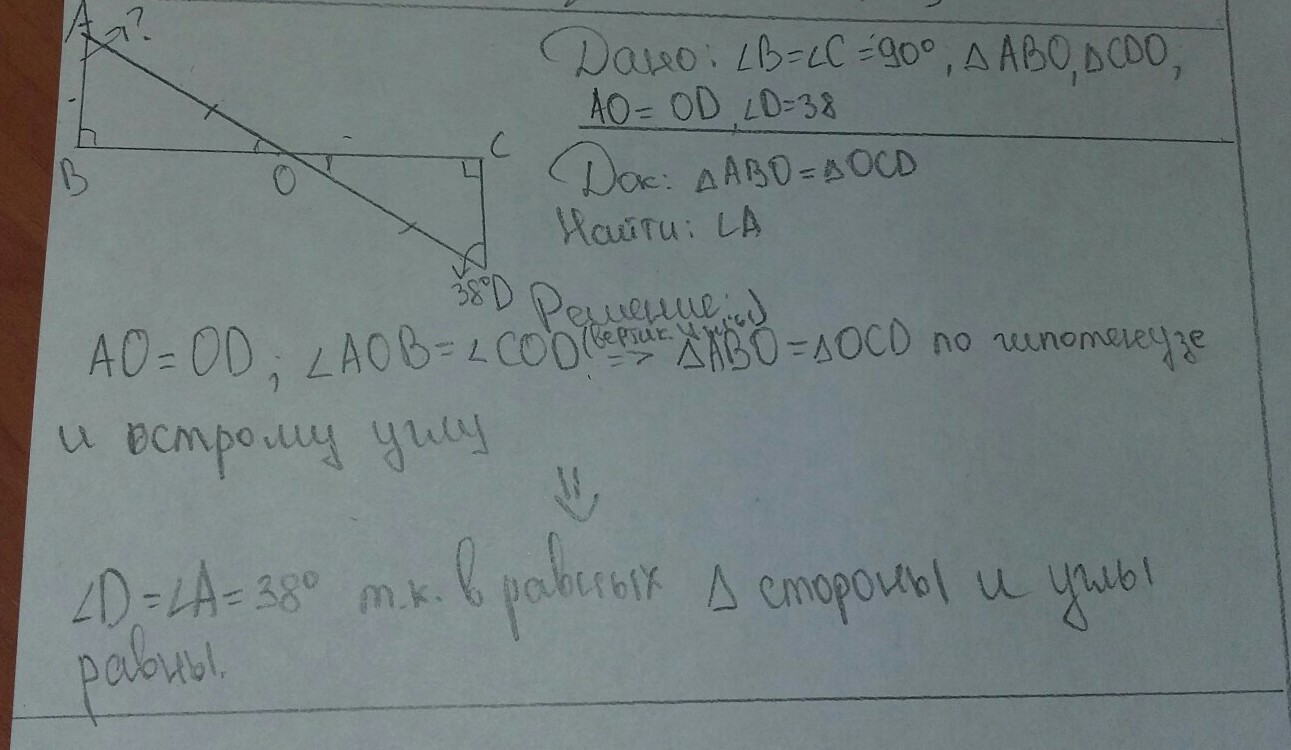 A ?
B
O
C
38° D
Дано: ∠B=∠C=90°, △ABO, △COO,
AO = OD, ∠D=38
Док: △ABO=△OCD
Найти: ∠A
Решение:
AO=OD; ∠AOB=∠COD (вертик. => △ABO=△OCD по гипотенузе
и острому углу
⇓
∠D=∠A=38° т.к. в равных △ стороны и углы
равны.